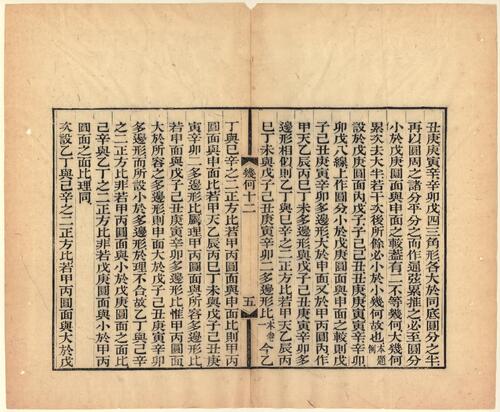 丑庚庚寅寅辛辛卯戊四三角形各大於同底圓分之半
再以圓周之諸分平分之而作逗弦累推之必至圓分
小於戊庚圓面與申面之較蓋有二不等幾何大幾何
累次去大半若干次後所餘必小於小幾何故也本題例
設於戊庚圓面內戊子子己己丑丑庚庚寅寅辛辛卯
卯戊八線上作圓分小於戊庚圓面與申面之較則戊
子己丑庚寅辛卯多邊形大於申面又於甲丙圓內作
甲天乙辰丙巳丁未多邊形與戊子己丑庚寅辛卯多
邊形相似則乙丁與己辛之二正方比若甲天乙辰丙
巳丁未與戊子己丑庚寅辛卯二多邊形比本卷一今乙
幾何十二
五
丁與己辛之二正方比若甲丙圓面與申面比則甲丙
圓面與申面比若甲天乙辰丙巳丁未與戊子己丑庚
寅辛卯二多邊形比屬理甲丙圓面與所容多邊形比
若申面與戊子己丑庚寅辛卯多邊形比惟甲丙圓面
大於所容之多邊形則申面大於戊子己丑庚寅辛卯
多邊形而所設小於多邊形於理不合故乙丁與己辛
之二正方比非若甲丙圓面與小於戊庚圓面之面比
己辛與乙丁之二正方比非若戊庚圓面與小於甲丙
圓面之面比理同
次設乙丁與己辛之二正方比若甲丙圓面與大於戊